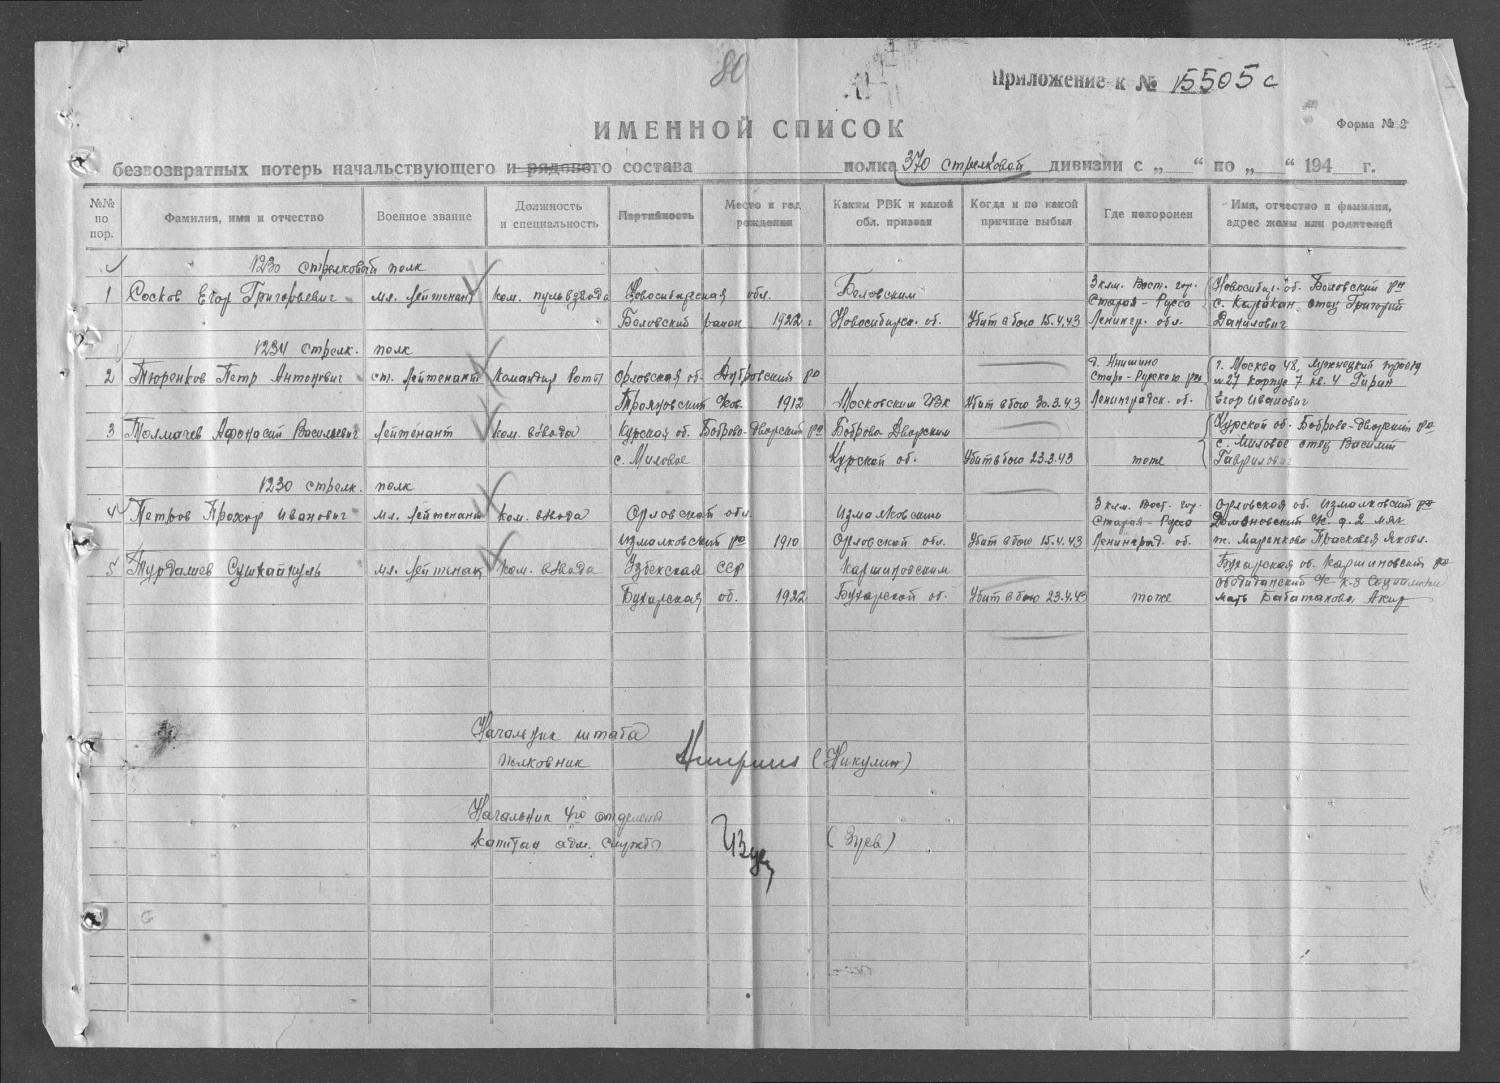 80
Приложение к № 15505с
ИМЕННОЙ СПИСОК
Форма № 2
безвозвратных потерь начальствующего и рядового состава полка 370 стрелковой дивизии с „ “ по „ “ 194 г.
№№ по пор.
Фамилия, имя и отчество
Военное звание
Должность и специальность
Партийность
Место и год рождения
Каким РВК и какой обл. призван
Когда и по какой причине выбыл
Где похоронен
Имя, отчество и фамилия, адрес жены или родителей
1230 стрелковый полк
1 Сосков Егор Григорьевич мл. лейтенант ком. пульвзвода Новосибирская обл. Беловским 3 клм. Вост. гор. Новосибир. об. Беловский рн
Старая-Русса с. Каракан отец Григорий
Беловский район 1922 г Новосибирск. об. Убит в бою 15.4.43 Ленингр. обл. Данилович
1234 стрелк. полк
2 Тюренков Петр Антонович ст. лейтенант Командир роты Орловская об. Дубровский рн Старо-Русского рн г. Москва 48, Лужнецкий проезд
№27 корпус 7 кв. 4
1912 Московским ГВК Убит в бою 30.3.43 Ленинградск. об. Егор Иванович
3 Толмачев Афонасий Васильевич лейтенант ком. взвода Курской об. Боброво-Дворский рн Боброво Дворским Курской об. Боброво-Дворский рн
с. Миловое отец Василий
с. Миловое Курской об. Убит в бою 23.3.43 тоже Гаврилович
1230 стрелк. полк
4 Петров Прохор Иванович мл. лейтенант ком. взвода Орловской обл. Измалковским 3 клм. Вост. гор. Орловская об. Измалковский рн
Старая-Русса
Измалковский рн 1910 Орловской обл. Убит в бою 15.4.43 Ленинград. об. ж. Маренкова Прасковья Яковл.
5 Турдалиев Сушкайкуль мл. лейтенант ком. взвода Узбекская ССР Каршиновским Бухарская об. Каршиновский рн
Бухарская об. 1922 Бухарской об. Убит в бою 23.4.43 тоже мать Бабатахова
Начальник штаба
полковник (Никулин)
Начальник 4го отделения
Капитан адм. службы (Зуев)